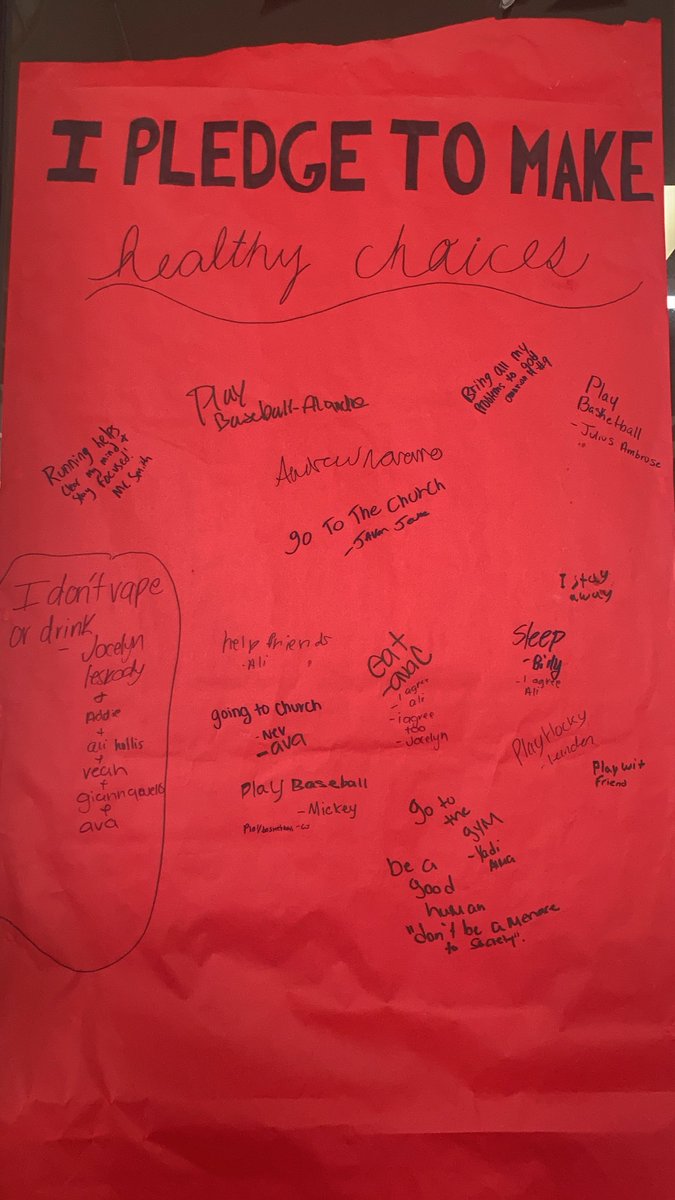 I PLEDGE TO MAKE
healthy choices
Running helps
clear my mind +
stay focused!!
Mr. Smith
Play
Baseball-
Bring all my
problems to god
#9
Play
Basketball
- Julius Ambrose
Andrew
go To The Church
I stay
away
I don't vape
or drink
- Jocelyn
+
Addie
+
ali hollis
+
+
ava
help friends
- Ali
going to church
- Nev
- ava
Play Baseball
- Mickey
eat
- avaC
- I agree
ali
- i agree
too
- Jocelyn
Sleep
- I agree
Ali
Play Hocky
- Landen
Play wit
friend
go to
the
gym
- Yadi
be a
good
human
"don't be a Menace
to Society".